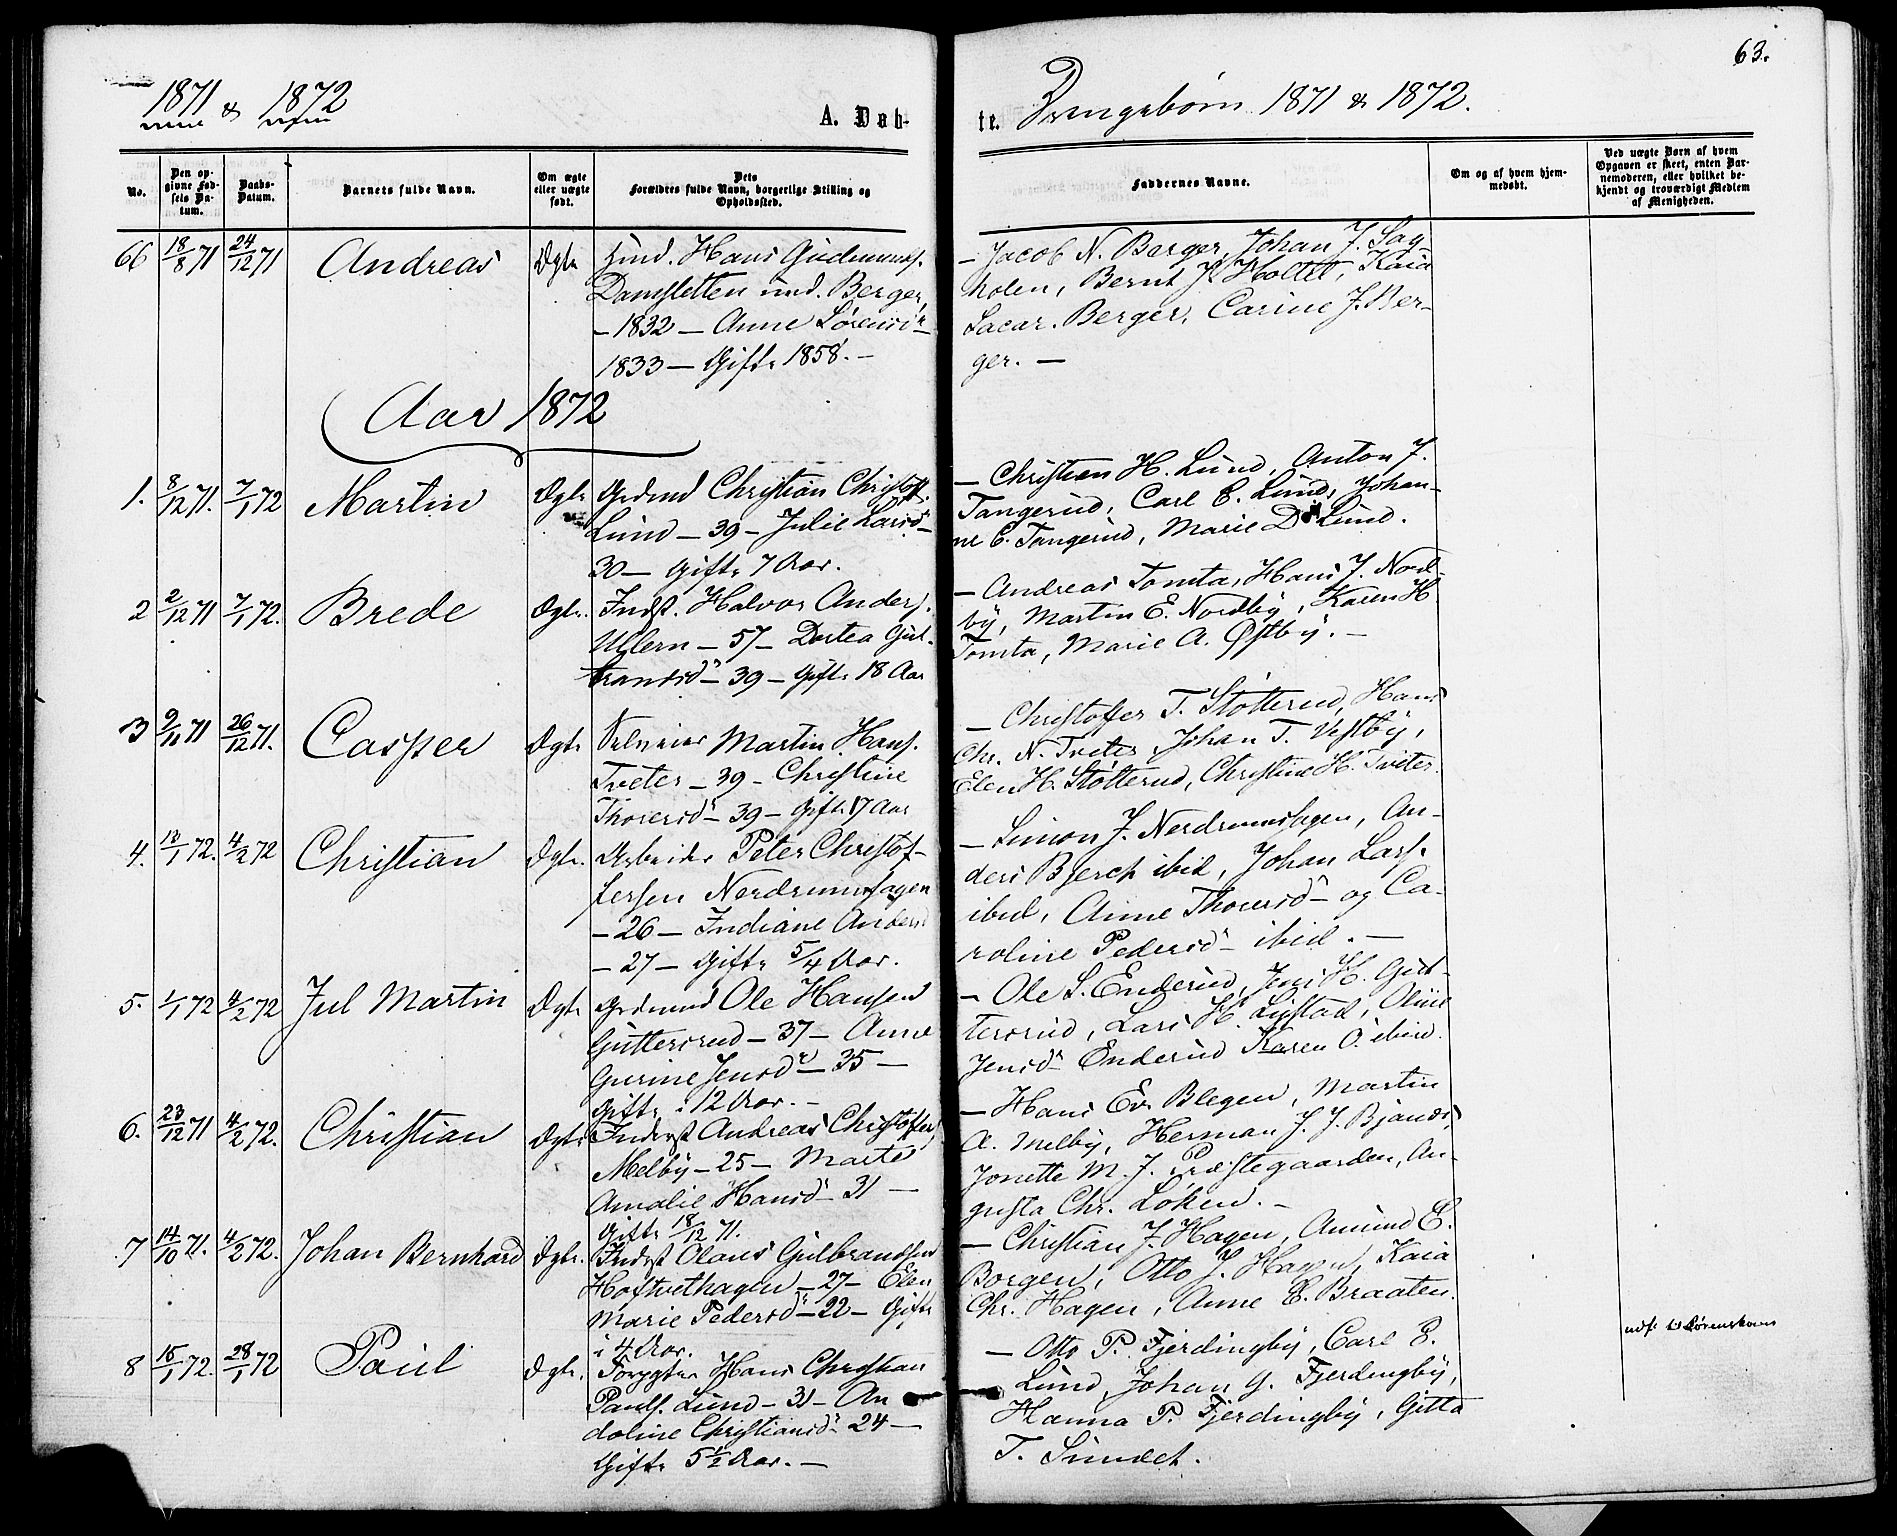 63.
1871 & 1872
A. Døb-
te. Drengebørn 1871 & 1872.
No.
Den op-
givne Fød-
sels Da-
tum.
Daabs-
Datum.
Barnets fulde Navn.
Om ægte
eller uægte
født.
Dets
Forældres fulde Navn, borgerlige Stilling og
Opholdssted.
Faddernes Navne.
Om og af hvem hjem-
medøbt.
Ved uægte Børn af hvem
Opgaven er skeet, enten Bar-
nemoderen, eller hvilket be-
kjendt og troværdigt Medlem
af Menigheden.
66 18/8 71 24/12 71 Andreas Ægte Husmd. Hans Gudmunds.
Damsletten und. Berger,
– 1832 – Anne Sørensd.
1833 – Gifte 1858. –
– Jacob N. Berger, Johan J. Sag-
holen, Bernt J. Holtet, Kaia
Berger, Carine J. Ber-
ger. –
Aar 1872
1. 8/12 71. 7/1 72 Martin Ægte Grdmd Christian Christoff.
Lund – 39 – Julie Larsd –
30 – Gifte 7 Aar.
– Christian H. Lund, Anton J.
Tangerud, Carl E. Lund, Johan-
ne E. Tangerud, Marie D. Lund.
2 2/12 71 7/1 72. Brede Ægte. Indst. Halvor Anders.
Ullern – 57 – Dortea Gul-
bransd – 39 – Gifte 18 Aar
– Andreas Tomta, Hans J. Nord-
by, Martin E. Nordby, Karen H.
Tomta, Marie A. Østby. –
3 9/11 71 26/12 71. Casper Ægte Selveier Martin Hans.
Tveter – 39 – Christine
Thoresd – 39 – Gifte 17 Aar
– Christoffer T. Støtterud, Hans
Chr. N. Tveter, Johan T. Vestby,
Elen H. Støtterud, Christine H. Tveter.
4. 13/1 72. 4/2 72 Christian Ægte. Arbeider Peter Christof-
fersen Nerdrumsagen
– 26 – Indiane Andersd
– 27 – Gifte 5/4 Aar.
– Simon J. Nerdrumsagen, An-
ders Bjerch ibid, Johan Lars.
ibid, Anne Thoresd – og Ca-
roline Pedersd – ibid. –
5. 1/1 72 4/2 72 Jul Martin Ægte Grdmand Ole Hansen
Guttersrud – 37 – Anne
Gurine Jensd – 35 –
Gifte i 12 Aar. –
– Ole S. Enderud, Jens H. Gut-
tersrud, Lars H. Lystad, Oline
Jensd Enderud Karen O. ibid.
6. 23/12 71 4/2 72. Christian Ægte Inderst Andreas Christoffers.
Melby – 25 – Marte
Amalie Hansd – 31 –
Gifte 18/12 71.
– Hans Ev. Blegen, Martin
A. Melby, Herman J. J. Bjanæs,
Jonette M. J. Præstegaarden, Au-
gusta Chr. Løken. –
7 14/10 71. 4/2 72. Johan Bernhard Ægte. Indrst Olaus Gulbrandsen
Hoftvethagen – 27 – Elen
Marie Pedersd – 22 – Gifte
i 4 Aar.
– Christian J. Hagen, Amund E.
Borgen, Otto J. Hagen, Kaia
Chr. Hagen, Anne E. Braaten.
8 15/1 72. 28/1 72 Paul Ægte. Forpgter Hans Christian
Pauls. Lund – 31 – An
doline Christiansd – 24 –
Gifte 5 1/2 Aar. –
– Otto P. Fjerdingby, Carl E.
Lund, Johan G. Fjerdingby,
Hanna P. Fjerdingby, Gitta
T. Sundet.
udfl til Lørenskoven